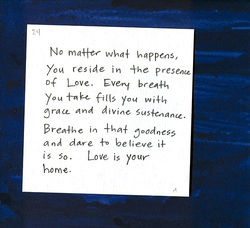 24
No matter what happens,
You reside in the presence
of Love. Every breath
you take fills you with
grace and divine sustenance.
Breathe in that goodness
and dare to believe it
is so. Love is your
home.